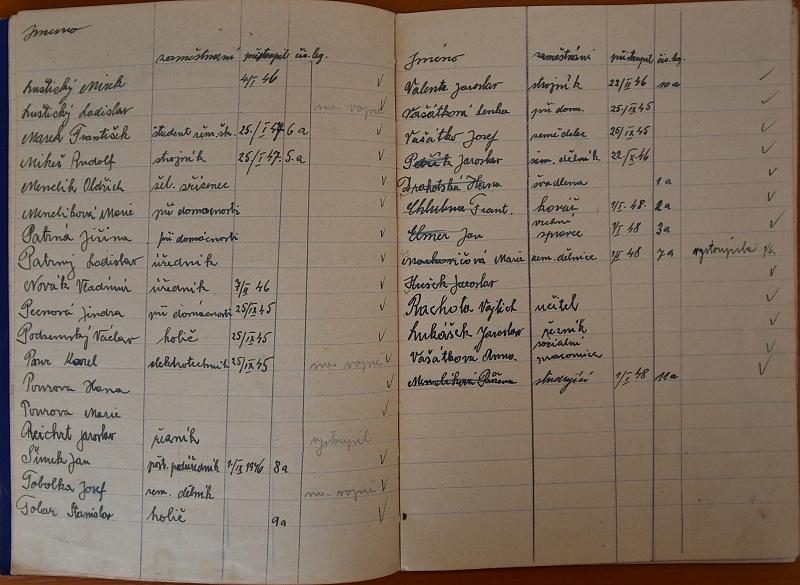 Jméno
zaměstnání přistoupil čís. leg.
Rustický Mirek 4/I 46
Rustický Ladislav na vojně
Marek František student rém. šk. 25./I 47 6a
Mikeš Rudolf strojník 25/I 47. 5.a
Menclík Oldřich žel. zřízenec
Menclíková Marie při domácnosti
Patrná Jiřina při domácnosti
Patrný Ladislav úředník
Novák Vladimír úředník 7/II 46
Pecnová Jindra při domácnosti 25/IX 45
Podzemský Václav holič 25/IX 45
Pour Karel elektrotechnik 25/IX 45 na vojně
Pourova Hana
Pourova Marie
Reichrt Jaroslav řezník vystoupil
Šimek Jan pošt. podúředník 1/IX 1946 8a
Tobolka Josef zem. dělník na vojně
Tolar Stanislav holič 9a
Jméno zaměstnání přistoupil čís. leg.
Valenta Jaroslav strojník 22/II 46 10a
Vašátková Lenka při dom. 25./IX 45
Vašátko Josef zemědělec 25/IX 45
Jaroslav zem. dělník 22/IX 46
Drahotská Hana švadlena 1a
Chlubna Frant. kovář 1/I. 48. 2a
Elmer Jan vrchní správce 1/I 48 3a
Marie zem. dělnice 1/II 48 7a vystoupila
Jaroslav
Rachota Vojtěch učitel
Lukášek Jaroslav řezník
Vašátková Anna sociální pracovnice
Menclíková Růžena studující 1/I 48 11a